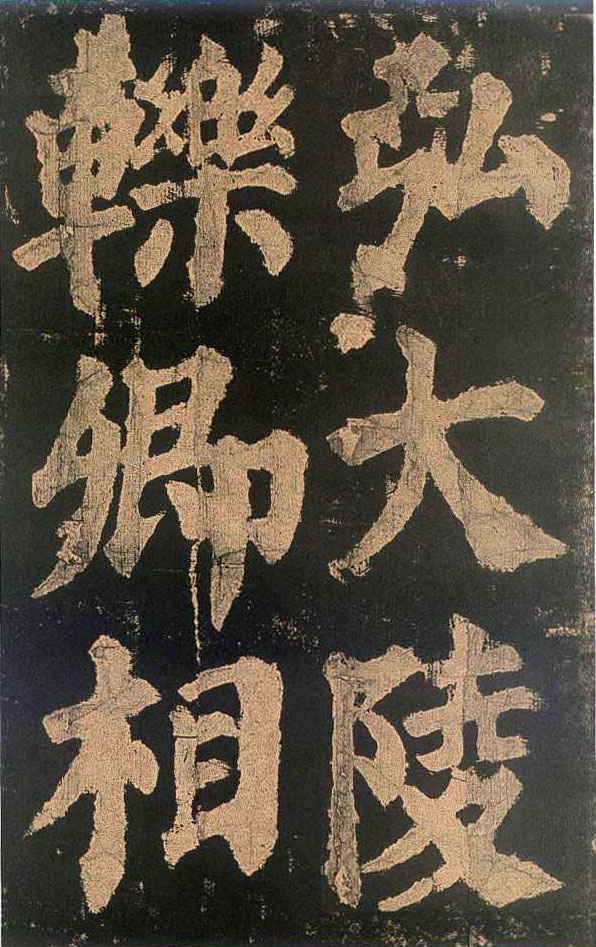 弘大陵
轢卿相